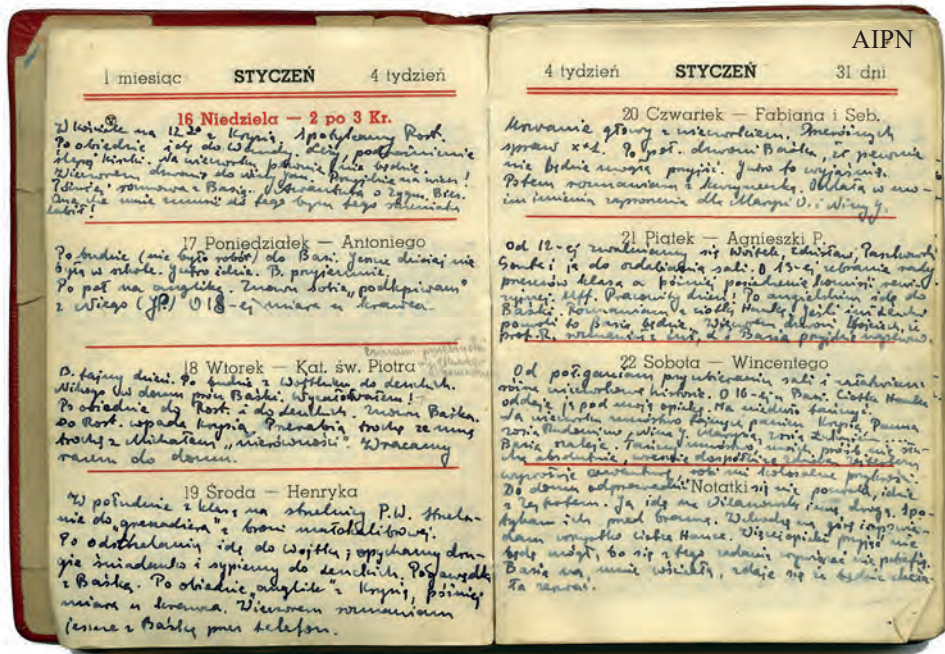 AIPN
1 miesiąc STYCZEŃ 4 tydzień
16 Niedziela — 2 po 3 Kr.
W kościele na 12 20 z Krysią. Spotykamy Rost.
Po obiedzie idę do Wandy.
ślepej kiszki. Na wieczorku pewnie nie będzie!
Wieczorem dzwoni do mnie
rozmowa z Basią. Awantura o Zygm. Bies.
Ona nie mnie zmusi do tego bym tego szczeniaka
lubił!
17 Poniedziałek — Antoniego
Po budzie (nie było robót) do Basi. Jeszcze dzisiaj nie
była w szkole. Jutro idzie. B. przyjemnie.
Po poł na anglika. Znowu sobie „podkpiwam"
z Wiego (J?) O 18-ej miara u krawca.
18 Wtorek — Kat. św. Piotra
B. fajny dzień. Po budzie z Wojtkiem do
Nikogo w domu prócz Baśki.
Po obiedzie do Rost. i do Znowu Baśka.
Do Rost. wpada Krysia. Przerabia trochę ze mną
trochę z „nierówności". Wracamy
razem do domu.
19 Środa — Henryka
W południe z klasą na strzelnicy P.W. Strzela-
nie do „grenadiera" z broni małokalibrowej.
Po odstrzelaniu idę do Wojtka; opychamy dru-
gie śniadanko i sypiemy do Pogawędka
z Baśką. Po obiedzie „anglik" z Krysią, później
miara u krawca. Wieczorem rozmawiam
jeszcze z Baśką przez telefon.
4 tydzień STYCZEŃ 31 dni
20 Czwartek — Fabiana i Seb.
głowy z wieczorkiem. Przeróżnych
spraw x+1. Po poł. dzwoni Baśka, że pewnie
nie będzie mogła przyjść. Jutro to wyjaśni.
Potem rozmawiam z
im imieniu zaproszenia dla Marysi O. i Niny J.
21 Piątek — Agnieszki P.
Od 12-ej zwalniamy się Wojtek, Zdzisław,
i ja do ozdabiania sali. O 13-ej zebranie rady
prezesów klasa a później posiedzenie komisji rewi-
zyjnej. Uff. Pracowity dzień! Po angielskim idę do
Baśki. Rozmawiam z ciotką Hanką. Jeśli
pozwoli to Basia będzie. Wieczorem dzwoni
prof. R. rozmawia z i Basia przyjdzie napewno.
22 Sobota — Wincentego
Od poł ganiam przy ubieraniu sali i załatwiam
różne wieczorkowe historie. O 16-ej u Basi. Ciotka Hanka
oddaje ją pod moją opiekę. Na
Na wieczorku mnóstwo fajnych panien Krysia, Panna
Zosia Nina J. Marysia, Zosia
Basia szaleje. mnóstwo, moich próśb nie słu-
cha absolutnie, wreszcie
wyprawia awanturę, robi mi kolosalną przykrość.
Notatki
Do domu odprowadzić się nie pozwala, idzie
z Ja idę na Wilanowską inną drogą. Spo-
tykam ich przed bramą. Wchodzę na górę i opowia-
dam wszystko ciotce Hance. Więcej opieki przyjąć nie
będę mógł, bo się z tego zadania wywiązać nie potrafię.
Basia na mnie wściekła, zdaje się że będzie chcia-
ła zerwać.